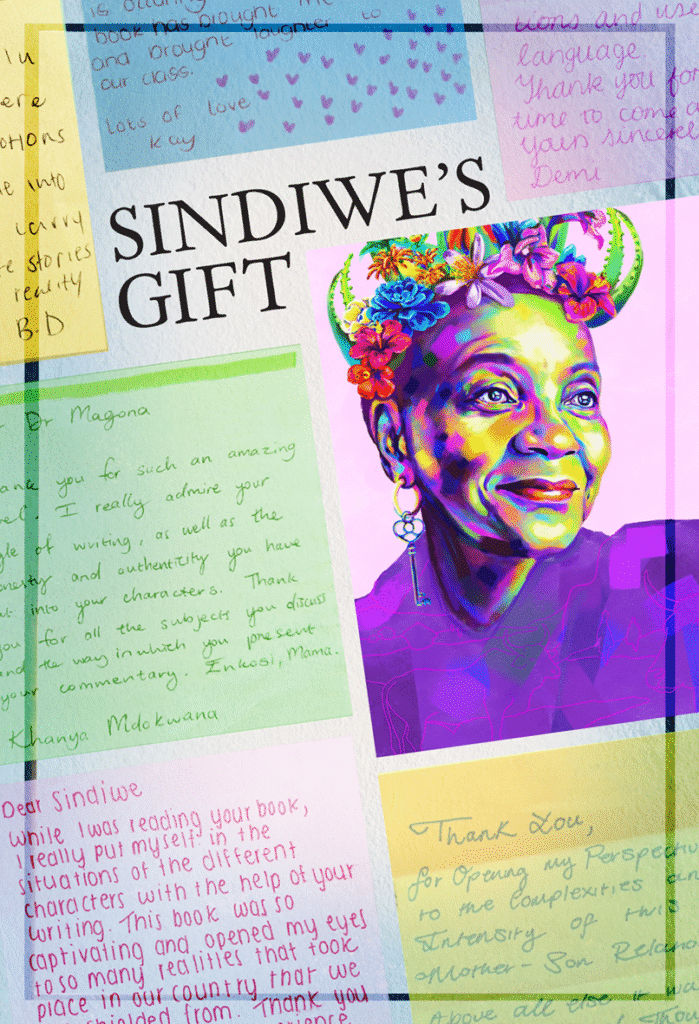 is
book has brought me
and brought laughter to
our class.
Lots of love
Kay
tions and use
language.
Thank you for
time to come
Yours sincerely
Demi
In
ere
otions
e into
carry
e stories
reality
B.D
SINDIWE'S
GIFT
Dr Magona
ank you for such an amazing
vel. I really admire your
yle of writing, as well as the
onesty and authenticity you have
ut into your characters. Thank
you for all the subjects you discuss
and the way in which you present
your commentary. Enkosi, Mama.
Khanya Mdokwana
Dear Sindiwe
While I was reading your book,
I really put myself in the
situations of the different
characters with the help of your
writing. This book was so
captivating and opened my eyes
to so many realities that took
place in our country that we
shielded from. Thank you
Thank You,
for Opening my Perspectiv
to the Complexities an
Intensity of this
Mother-Son Relatio
Above all else it wa